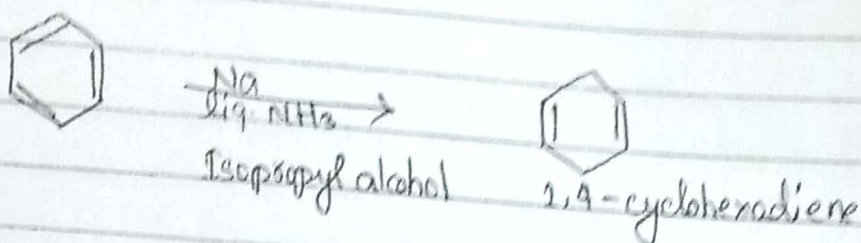 Na
liq. NH3
Isopropyl alcohol
1,4-cyclohexadiene